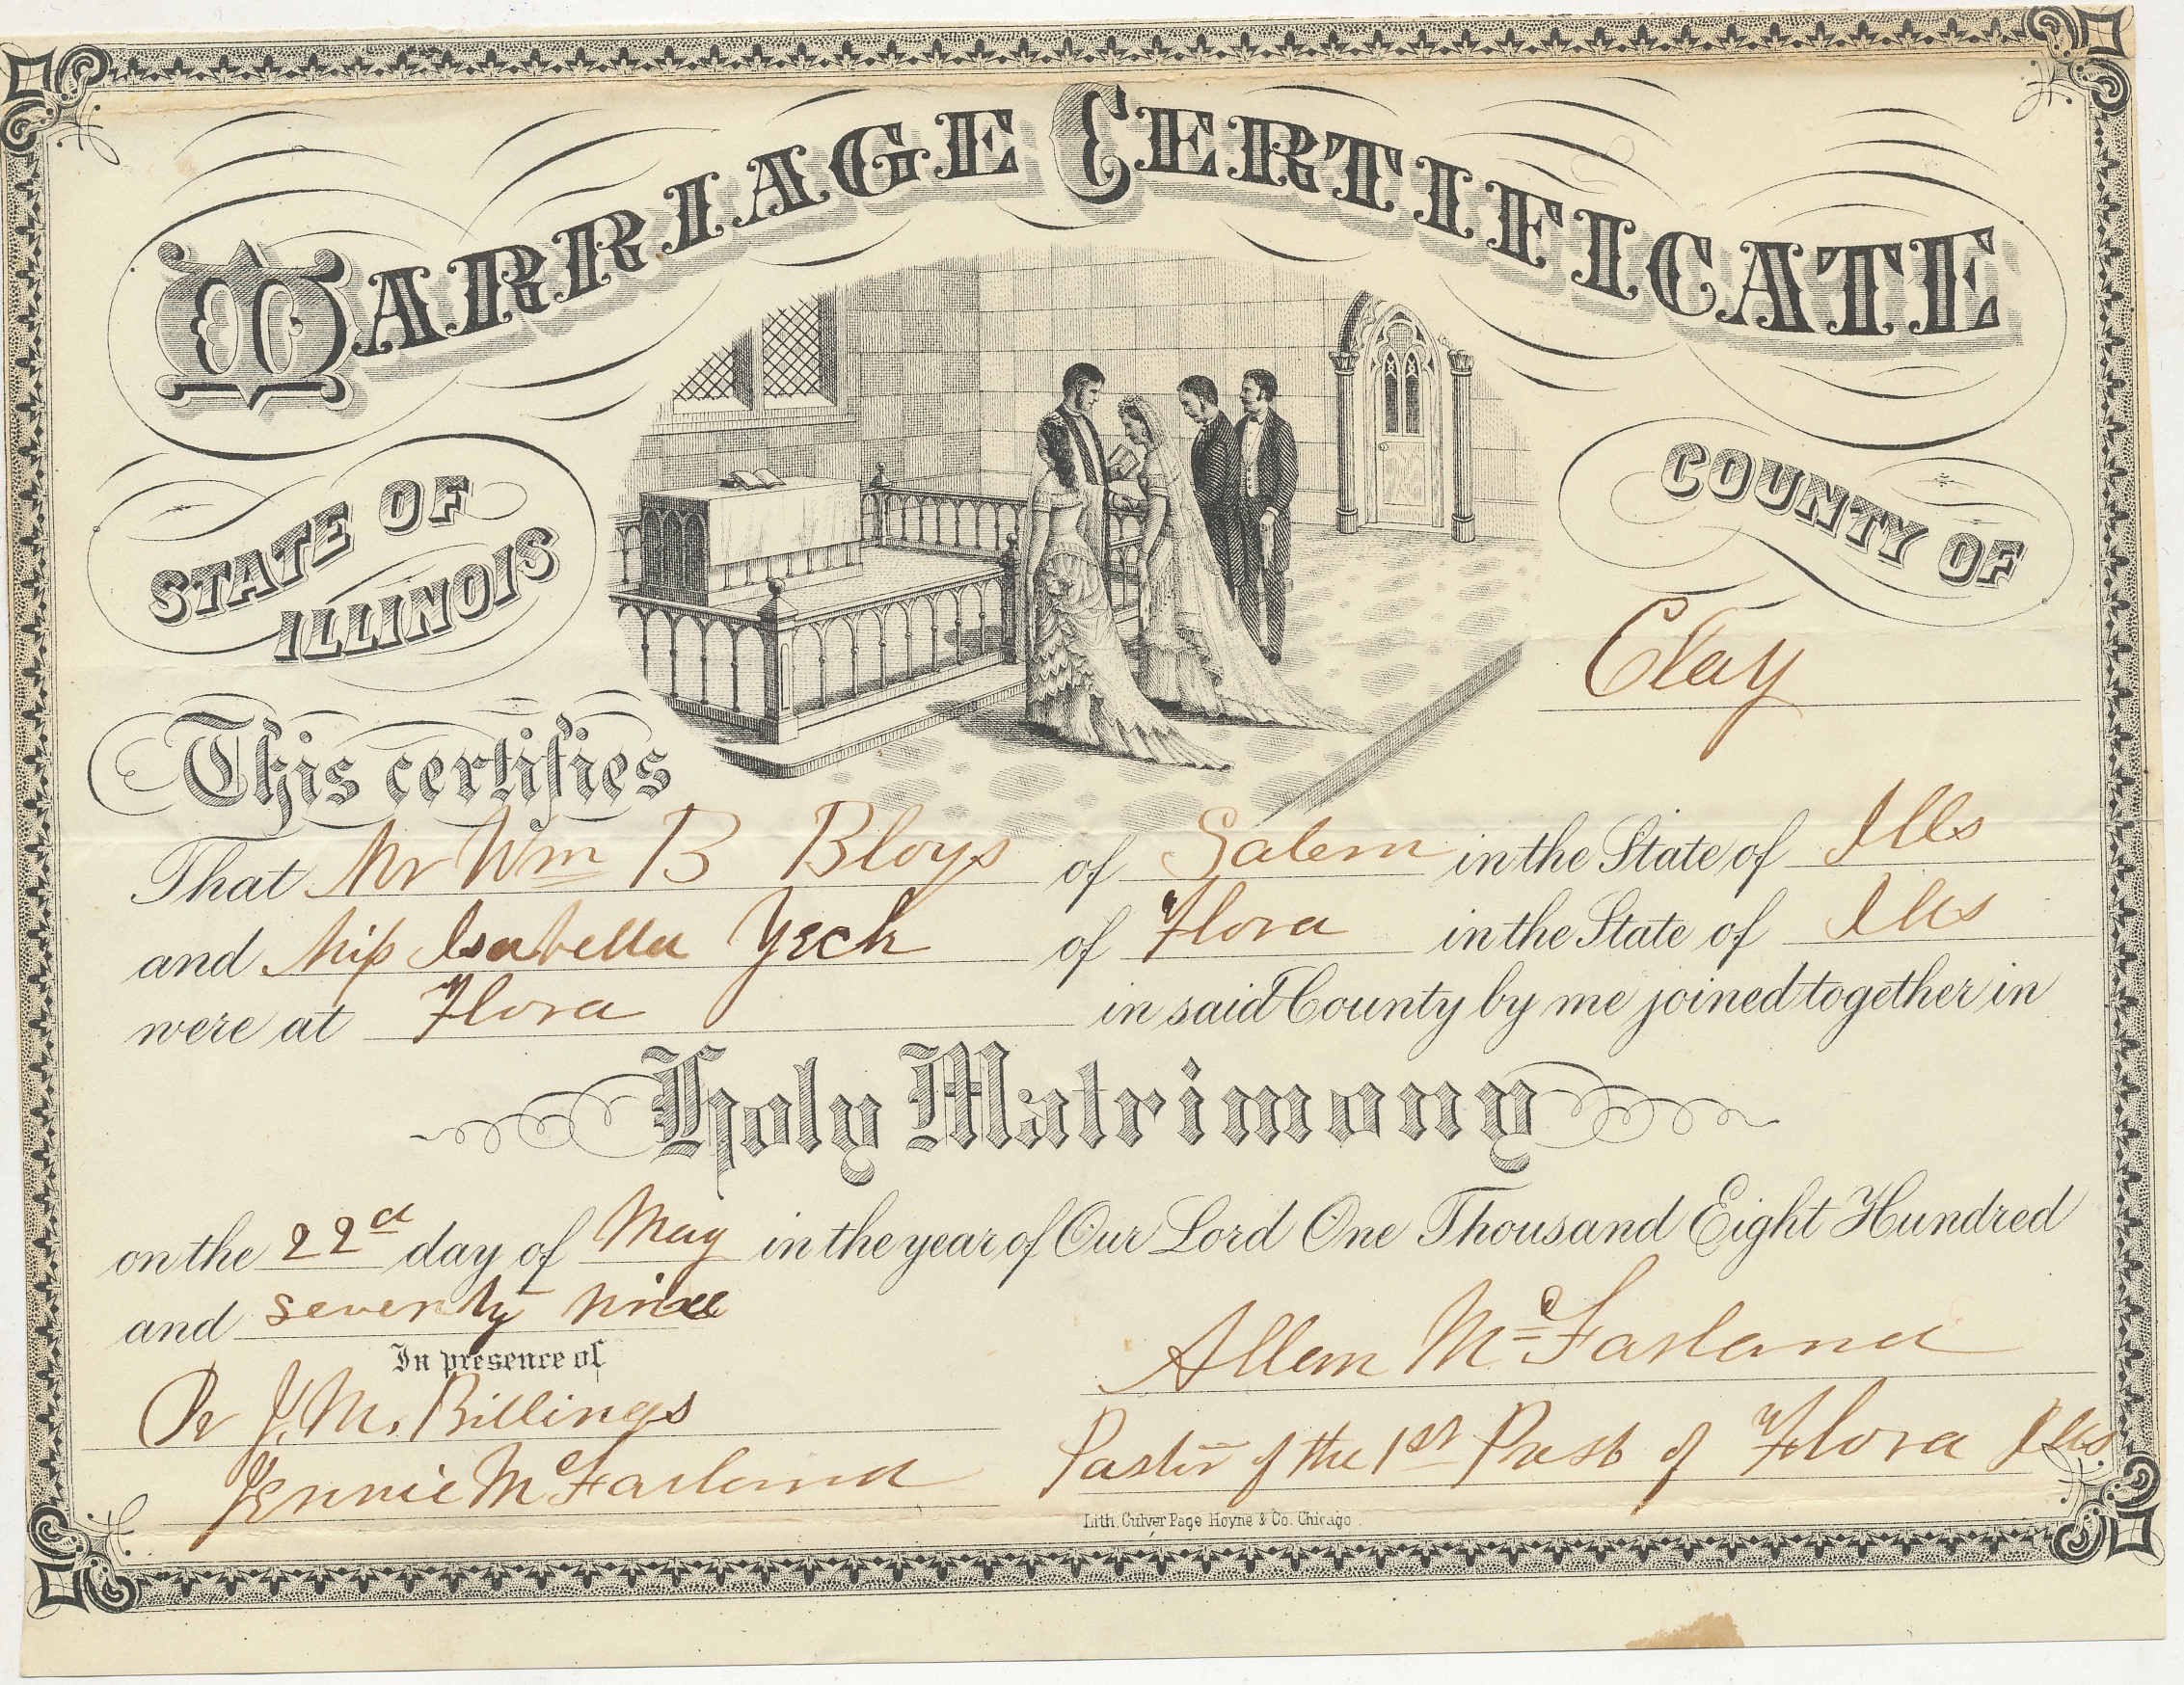 MARRIAGE CERTIFICATE
STATE OF
ILLINOIS
COUNTY OF
Clay
This certifies
That Mr Wm B Bloys of Salem in the State of Ills
and Miss Isabella Yeck of Flora in the State of Ills
were at Flora in said County by me joined together in
Holy Matrimony
on the 22d day of May in the year of Our Lord One Thousand Eight Hundred
and seventy nine
In presence of
Allen McFarland
Dr J. M. Billings
Pastor of the 1st Presb of Flora Ills
Jennie McFarland
Lith. Culver Page Hoyne & Co. Chicago.